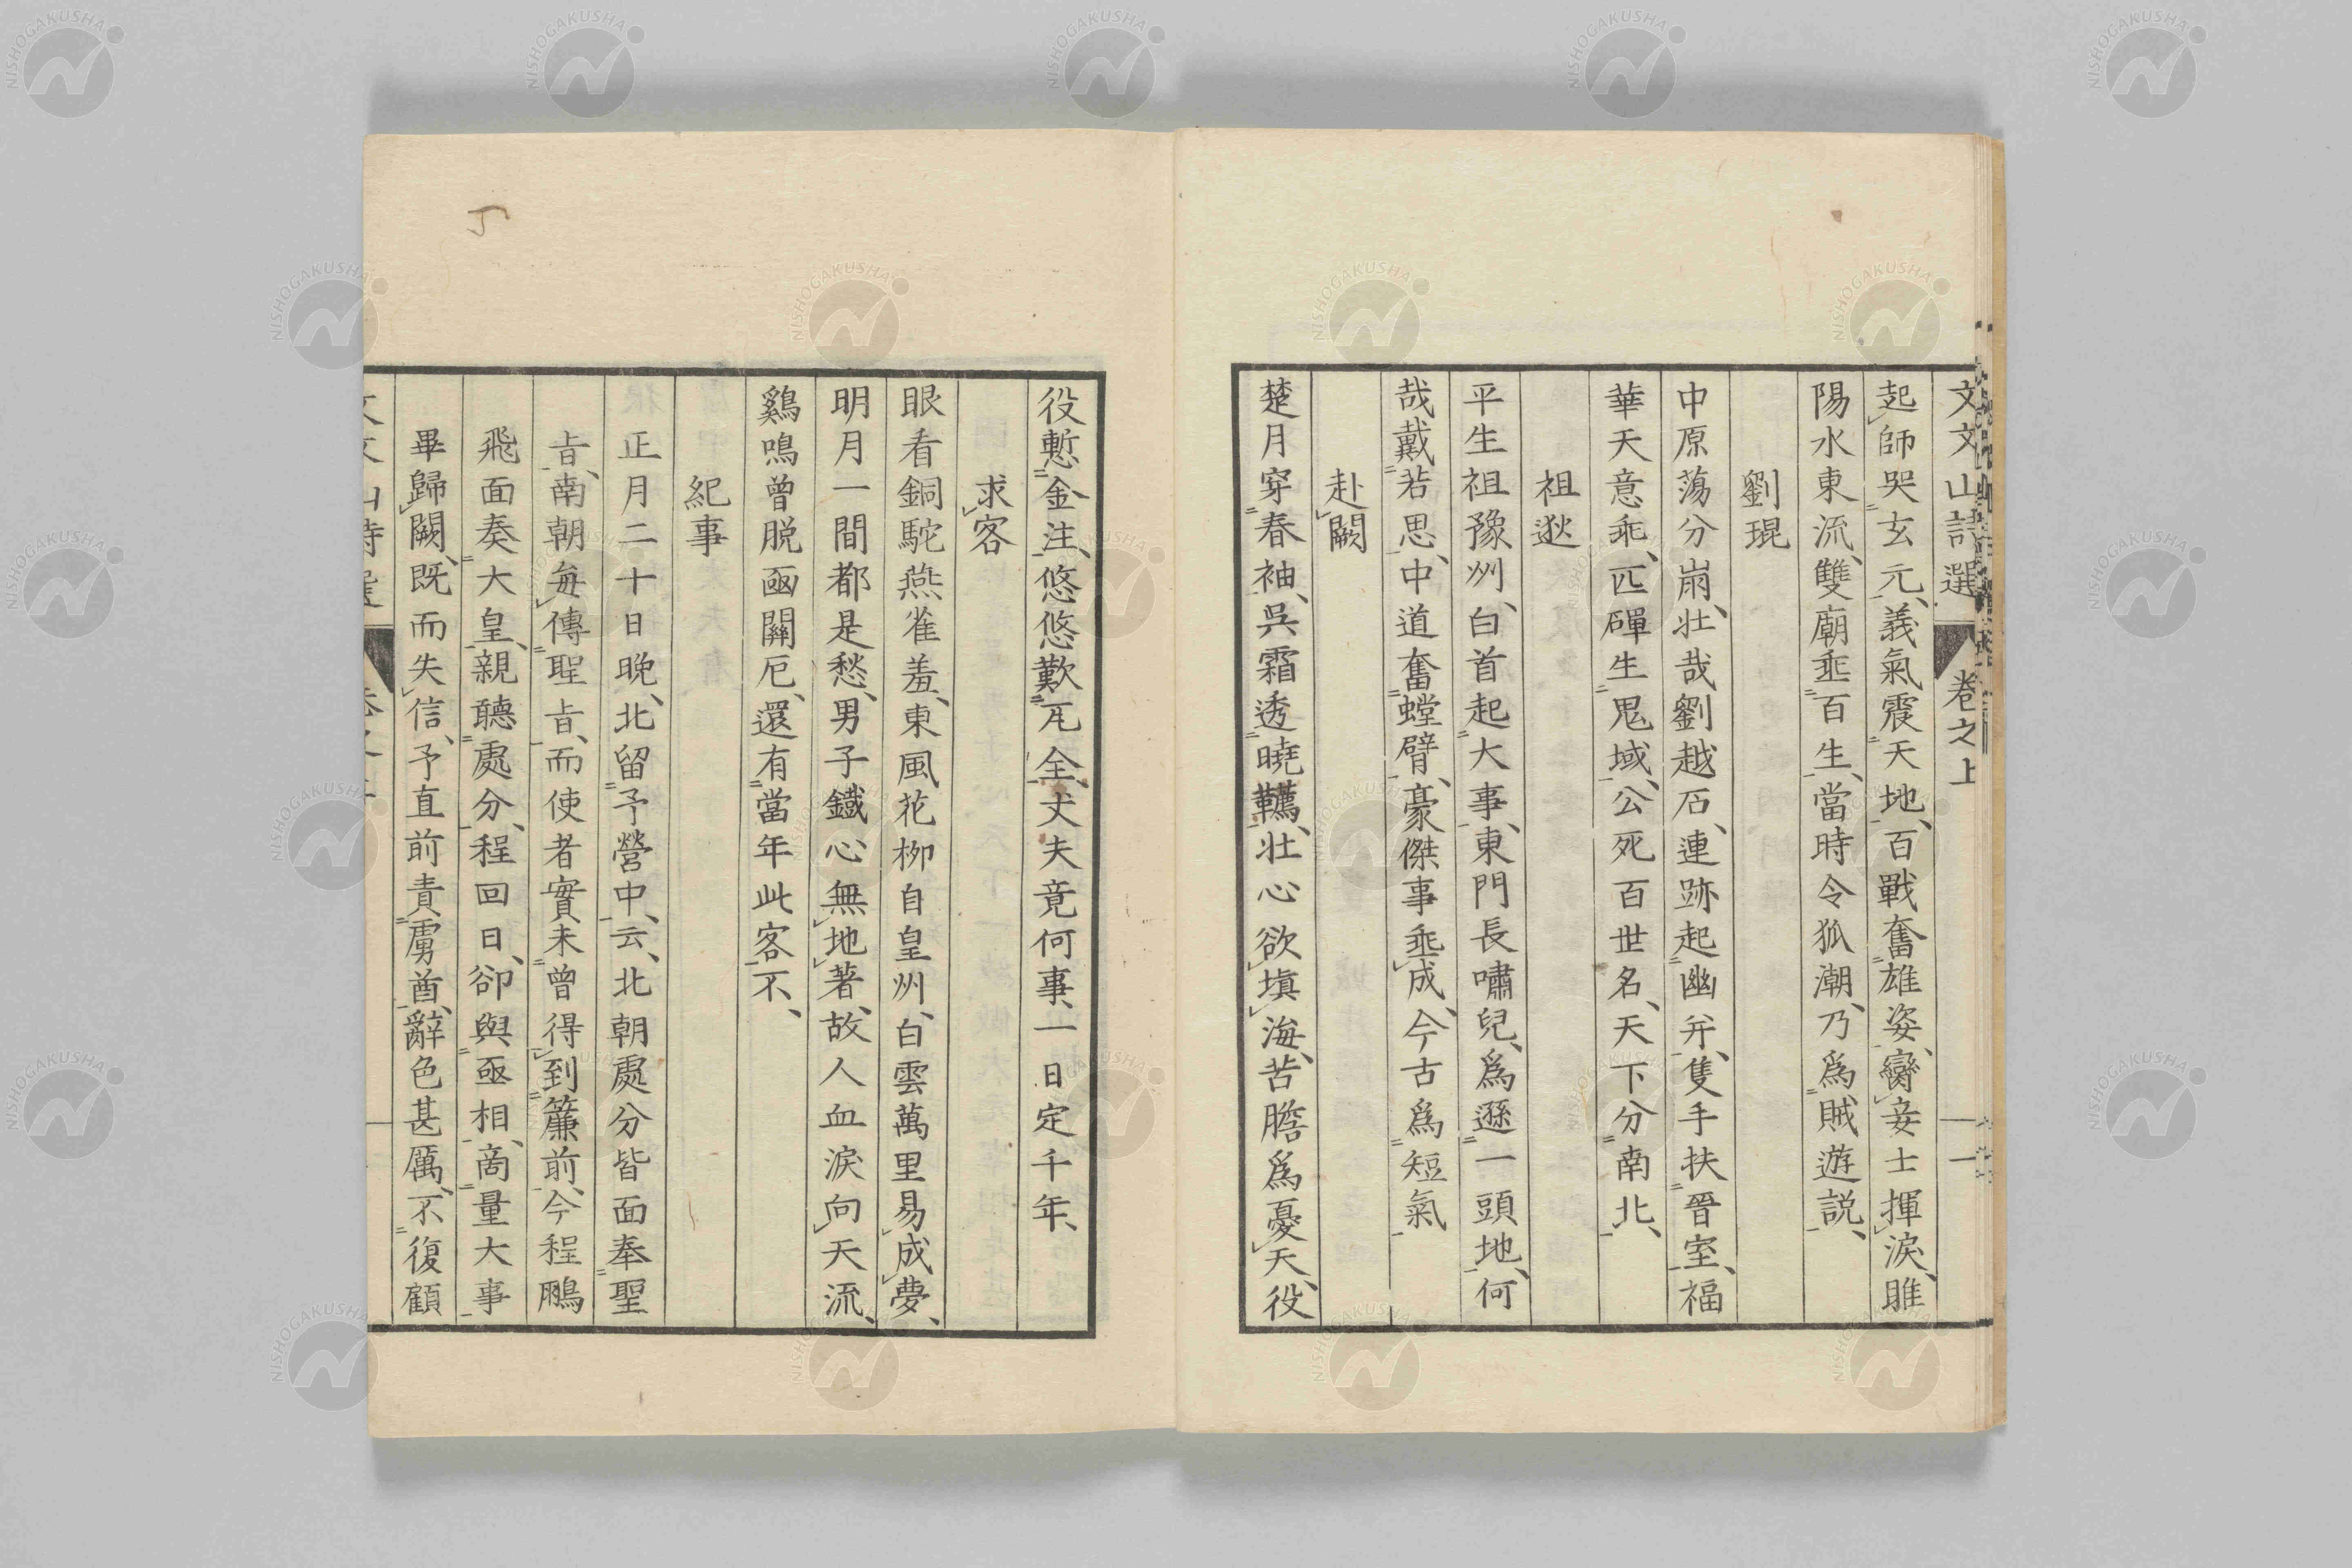 文文山詩選 卷之上 一
起師哭玄元、義氣震天地、百戰奮雄姿、臠妾士揮淚、睢
陽水東流、雙廟垂百生、當時令狐潮、乃為賊遊説、
劉琨
中原蕩分崩、壮哉劉越石、連跡起幽并、隻手扶晉室、福
華天意乖、匹磾生鬼域、公死百世名、天下分南北、
祖逖
平生祖豫州、白首起大事、東門長嘯兒、為遜一頭地、何
哉戴若思、中道奮螳臂、豪傑事垂成、今古為短氣
赴闕
楚月穿春袖、吳霜透曉韉、壮心欲塡海、苦膽為憂天、役
役慙金注、悠悠歎瓦全、丈夫竟何事、一日定千年、
求客
眼看銅駝燕雀羞、東風花柳自皇州、白雲萬里易成夢、
明月一間都是愁、男子鐵心無地著、故人血淚向天流、
鷄鳴曾脱凾關厄、還有當年此客不、
紀事
正月二十日晩、北留予營中、云、北朝處分皆面奉聖
旨、南朝每傳聖旨、而使者實未曾得到簾前、今程鵬
飛面奏大皇、親聽處分、程回日、卻與亟相、商量大事
畢歸闕、既而失信、予直前責虜酋、辭色甚厲、不復顧